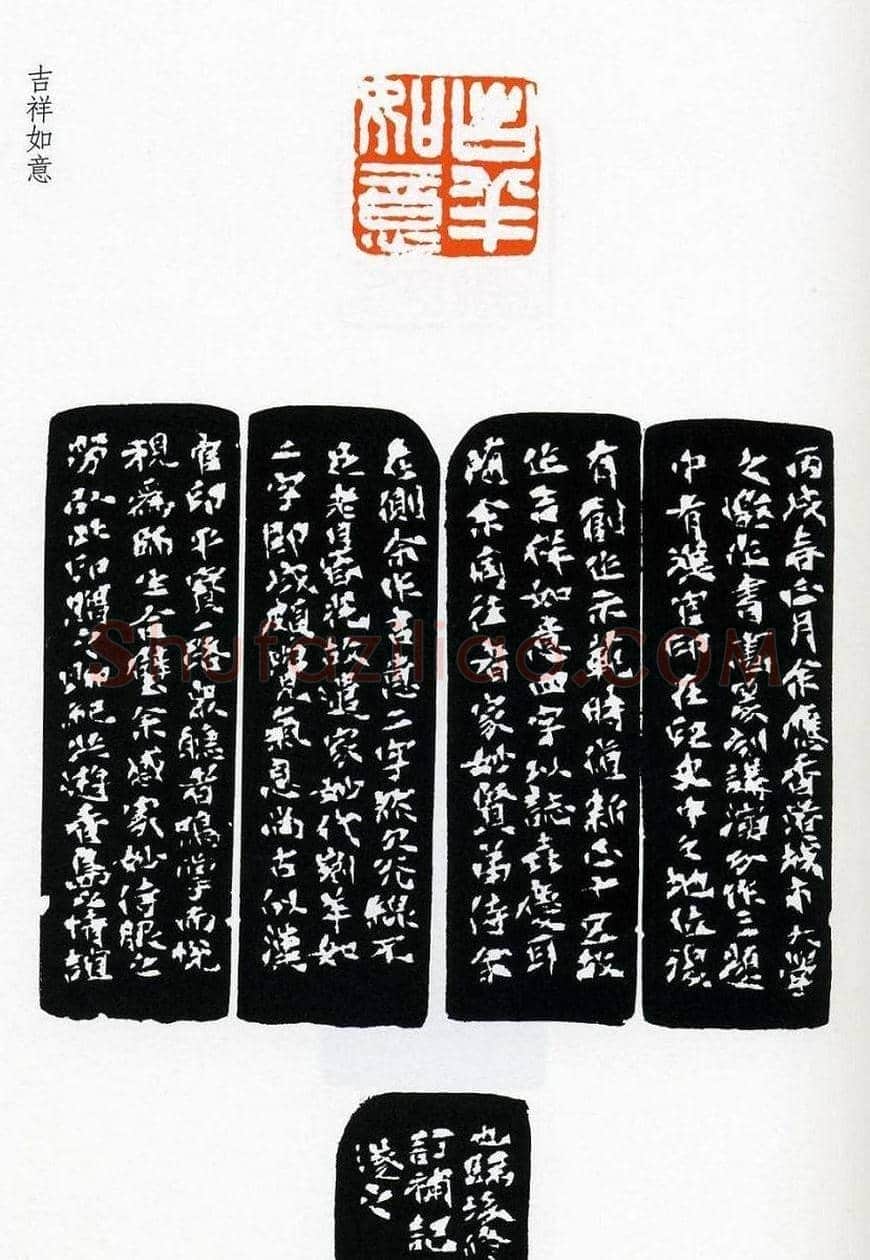 吉祥如意
吉羊如意
丙戌年正月余應香港城市大學
之邀作書畫篆刻講演於作三題
中有漢官印在印史中之地位後
有創作示範時值新正十五故
作吉祥如意四字以誌喜慶耳
隨余同往者家妙賢弟侍余
在側余作吉意二字然欠光線不
足老目昏
家妙代刻羊如
二字即成頗
氣息尚古似漢
官印平實一路眾聽者鳴掌而悅
視為師生合璧余感家妙侍眼之
勞以此印贈之
紀此遊香島之情誼
也
訂補記
之
Shufaziliao.COM